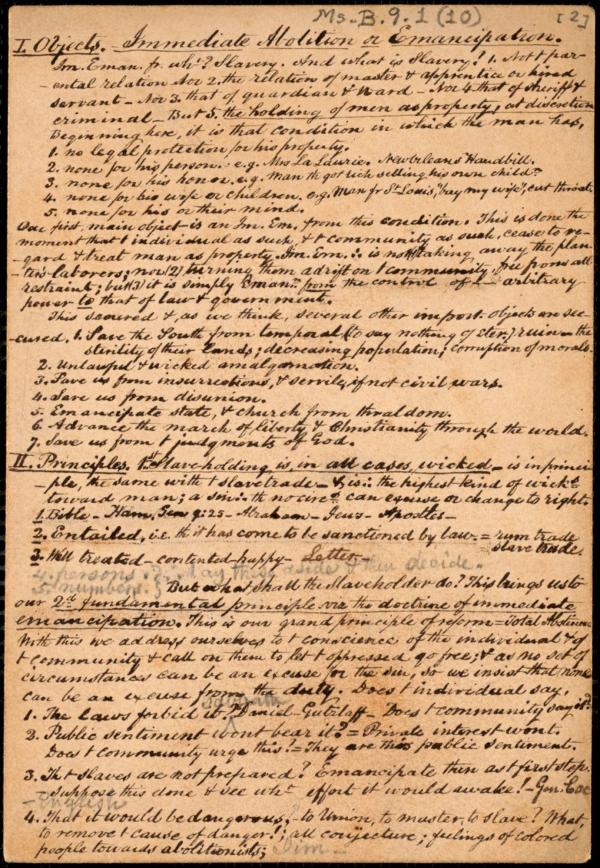 Ms. B. 9. 1 (10) [2]
I. Objects. Immediate Abolition or Emancipation.
Im. Eman. fr. wh't? Slavery. And what is Slavery? 1. Not t par-
ental relation Nor 2. the relation of master & apprentice or hired
servant - Nor 3. that of guardian & ward - Nor 4. that of sheriff &
criminal - But 5. the holding of men as property, at discretion
Beginning here, it is that condition in which the man has,
1. no legal protection for his property.
2. none for his person. e.g. Mrs La Laurie. New Orleans Handbill.
3. none for his honor. e.g. man th got rich selling his own childn
4. none for his wife or children. e.g. Man fr St Louis, "buy my wife", cut throat.
5. none for his or their mind.
Our first, main object is an Im. Em. from this condition. This is done the
moment that t individual as such, & t community as such, cease to re-
gard & treat man as property. Im. Em. ∴ is not (1) taking away the plan-
ters laborers; nor (2) turning them adrift on t community, free from all
restraint; but (3) it is simply Eman. from the control of arbitrary
power to that of law & government.
This secured &, as we think, several other import. objects are se-
cured. 1. Save the South from temporal (to say nothing of Eter.) ruin - the
sterility of their lands; decreasing population; corruption of morals.
2. Unlawful & wicked amalgamation.
3. Save us from insurrections, & servile, if not civil wars.
4. Save us from disunion.
5. Emancipate state, & church from thraldom.
6. Advance the march of liberty & Christianity through the world.
7. Save us from t judgments of God.
II. Principles. 1st Slaveholding is, in all cases, wicked - is in princi-
ple, the same with t slave trade - & is t highest kind of wick.
toward man; a sin th no circ. can excuse or change to right.
1. Bible - Ham, Gen 9:25 - Abraham - Jews - Apostles -
2. Entailed, i.e. th it has come to be sanctioned by law = rum trade
slave trade
3. Well treated - contented - happy - Letter -
4. persons : lay this aside & then decide.
5. numbers.
But what shall the slaveholder do? This brings us to
our 2d fundamental principle viz the doctrine of immediate
emancipation. This is our grand principle of reform = Total Abstinence
With this we address ourselves to t conscience of the individual & of
t community & call on them to let t oppressed go free; & as no set of
circumstances can be an excuse for the sin, so we insist that none
can be an excuse from the duty. Does t individual say,
1. The laws forbid it? Daniel - Gutzlaff - Does t community say it?
2. Public sentiment wont bear it? = Private interest wont.
Does t community urge this? = They are this public sentiment.
3. Th t slaves are not prepared? Emancipate then as t first step.
Suppose this done & see wht effort it would awake! - Gen. Coe
- English
4. That it would be dangerous; - to Union, to master, to slave? What,
to remove t cause of danger!; all conjecture; feelings of colored
people towards abolitionists; Jim -